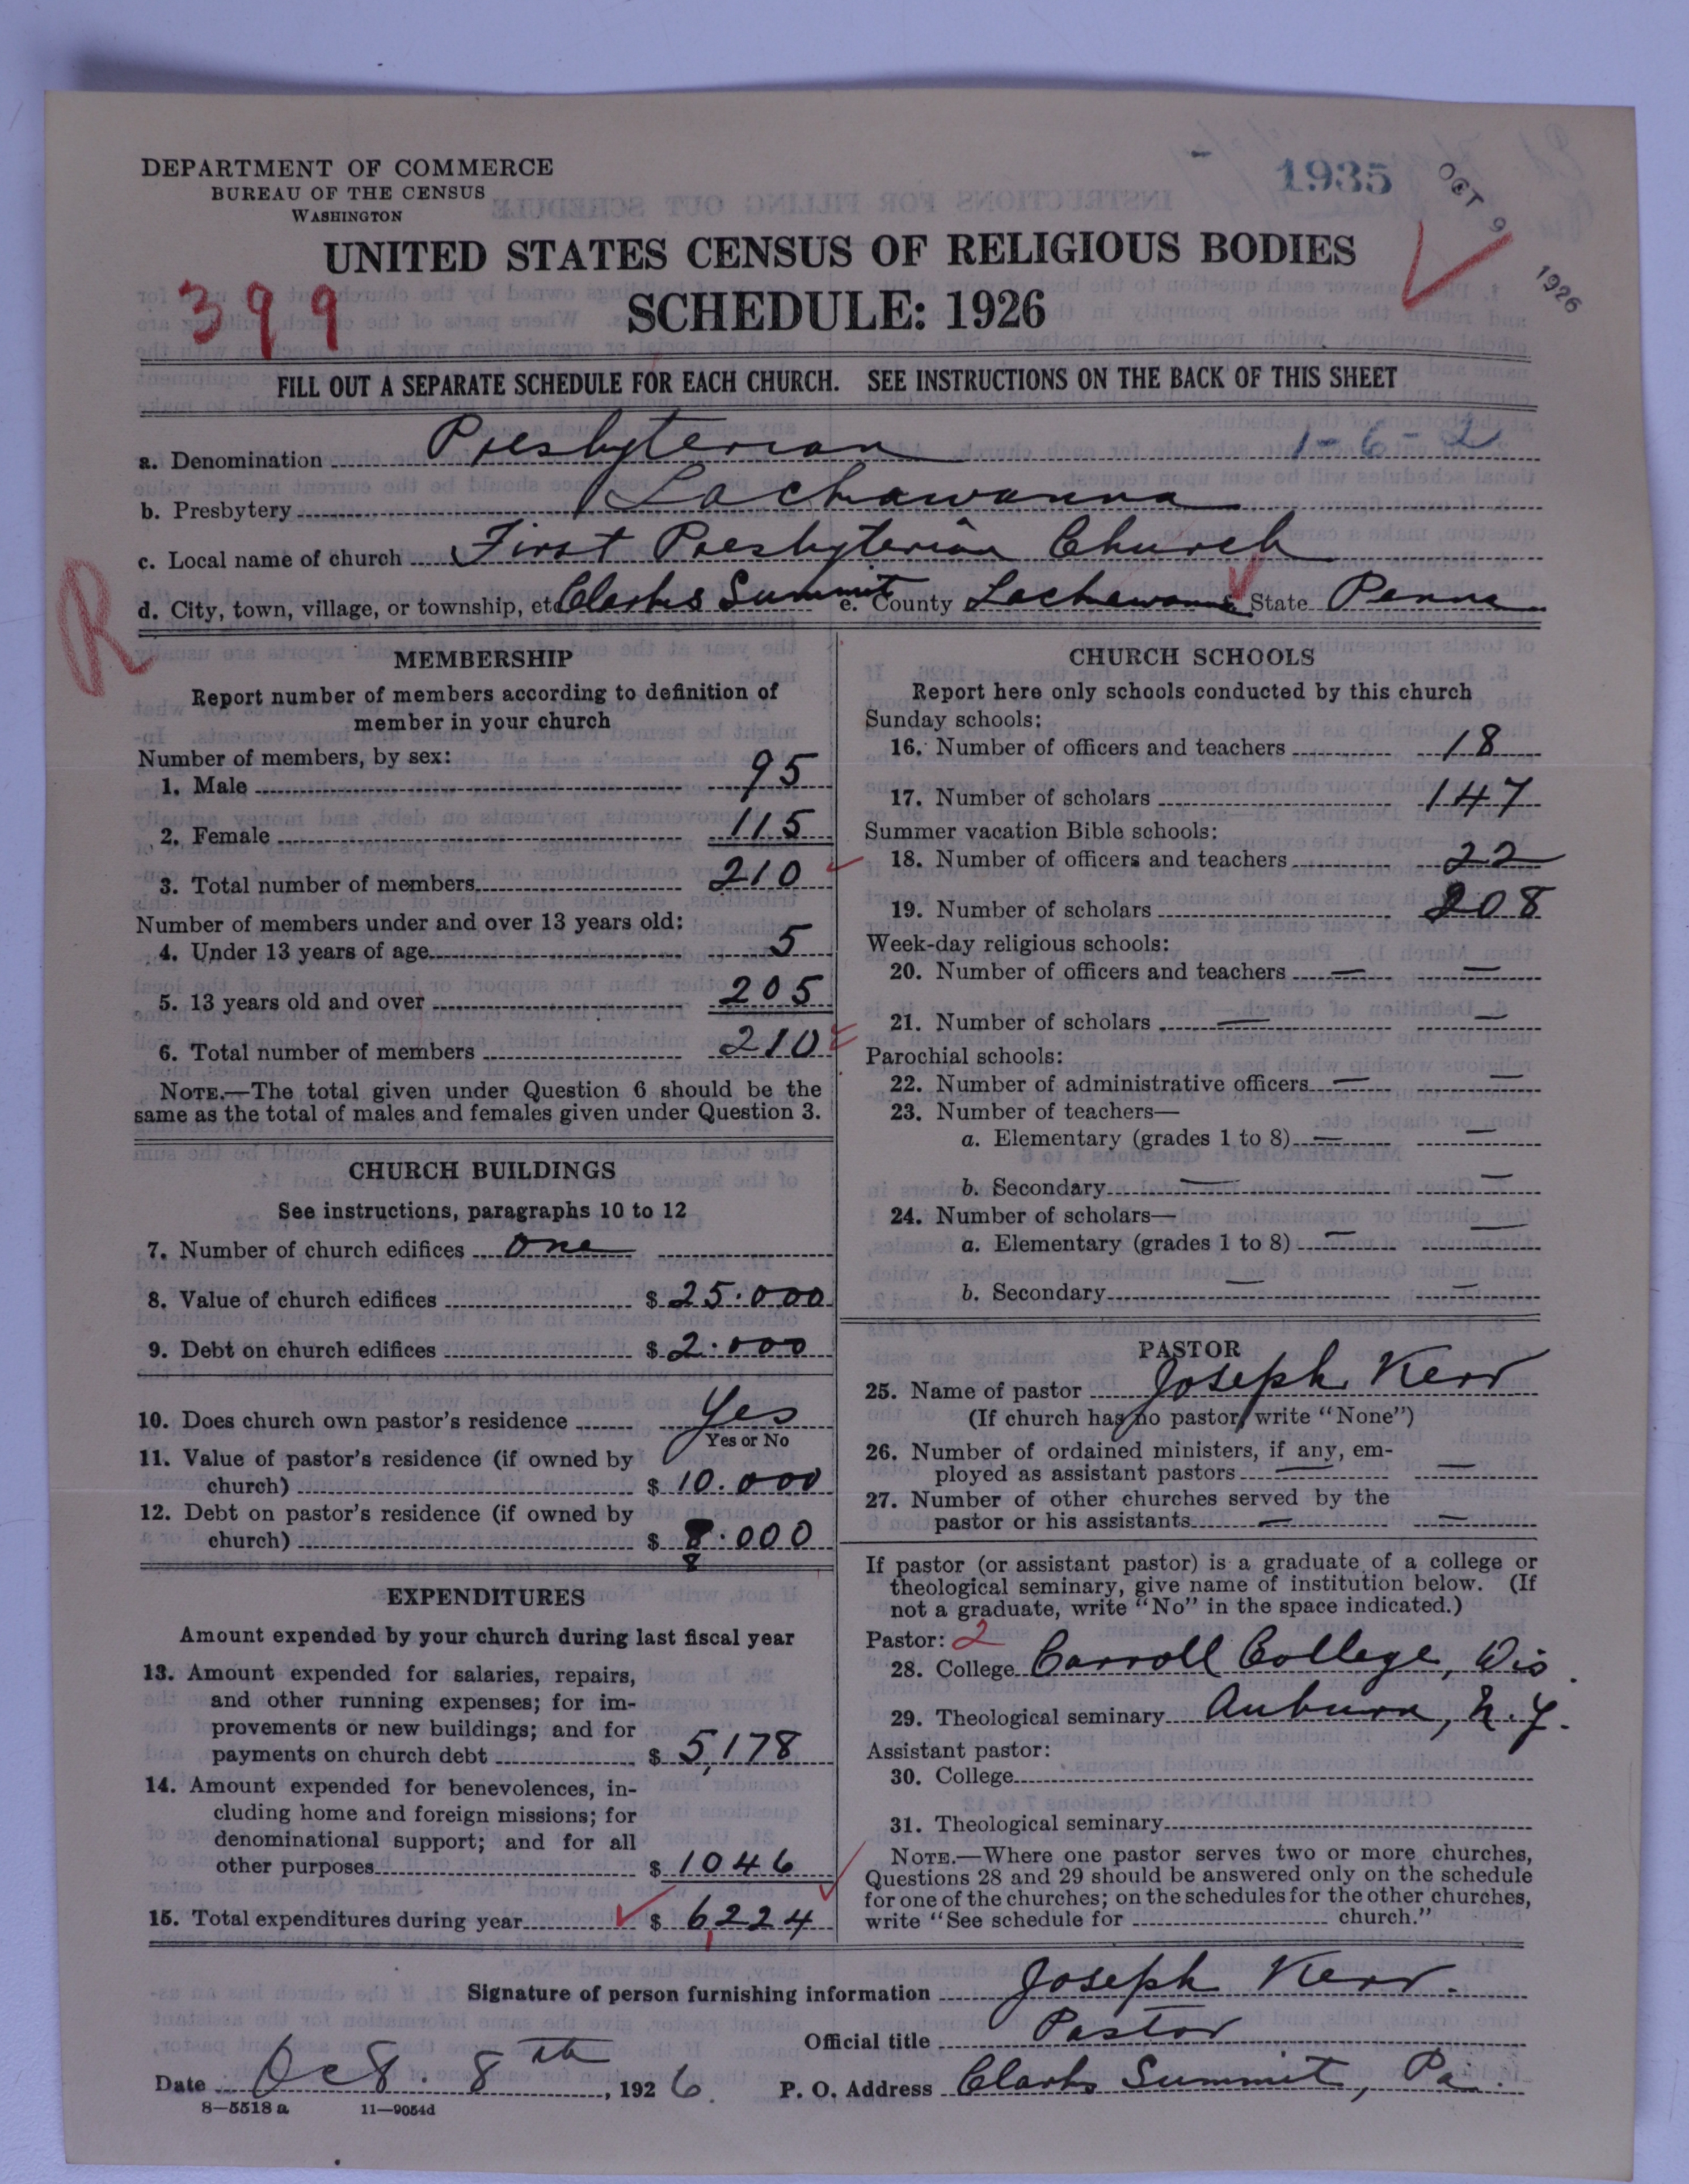 DEPARTMENT OF COMMERCE
BUREAU OF THE CENSUS
WASHINGTON
1935
OCT 9 1926
UNITED STATES CENSUS OF RELIGIOUS BODIES
399
SCHEDULE: 1926
FILL OUT A SEPARATE SCHEDULE FOR EACH CHURCH. SEE INSTRUCTIONS ON THE BACK OF THIS SHEET
a. Denomination Presbyterian 1-6-2
b. Presbytery Lackawanna
c. Local name of church First Presbyterian Church
R
d. City, town, village, or township, etc Clarks Summit e. County Lackawanna State Penna
MEMBERSHIP
Report number of members according to definition of
member in your church
Number of members, by sex:
1. Male 95
2. Female 115
3. Total number of members 210
Number of members under and over 13 years old:
4. Under 13 years of age 5
5. 13 years old and over 205
6. Total number of members 210
NOTE.—The total given under Question 6 should be the
same as the total of males and females given under Question 3.
CHURCH BUILDINGS
See instructions, paragraphs 10 to 12
7. Number of church edifices One
8. Value of church edifices $ 25.000
9. Debt on church edifices $ 2.000
10. Does church own pastor's residence Yes
Yes or No
11. Value of pastor's residence (if owned by
church) $ 10.000
12. Debt on pastor's residence (if owned by
church) $ 8.000
8
EXPENDITURES
Amount expended by your church during last fiscal year
13. Amount expended for salaries, repairs,
and other running expenses; for im-
provements or new buildings; and for
payments on church debt $ 5,178
14. Amount expended for benevolences, in-
cluding home and foreign missions; for
denominational support; and for all
other purposes $ 1046
15. Total expenditures during year $ 6224
CHURCH SCHOOLS
Report here only schools conducted by this church
Sunday schools:
16. Number of officers and teachers 18
17. Number of scholars 147
Summer vacation Bible schools:
18. Number of officers and teachers 22
19. Number of scholars 208
Week-day religious schools:
20. Number of officers and teachers — —
21. Number of scholars — —
Parochial schools:
22. Number of administrative officers — —
23. Number of teachers—
a. Elementary (grades 1 to 8) — —
b. Secondary — —
24. Number of scholars—
a. Elementary (grades 1 to 8) — —
b. Secondary — —
PASTOR
25. Name of pastor Joseph Kerr
(If church has no pastor, write "None")
26. Number of ordained ministers, if any, em-
ployed as assistant pastors — —
27. Number of other churches served by the
pastor or his assistants — —
If pastor (or assistant pastor) is a graduate of a college or
theological seminary, give name of institution below. (If
not a graduate, write "No" in the space indicated.)
Pastor: 2
28. College Carroll College, Wis.
29. Theological seminary Auburn, N.Y.
Assistant pastor:
30. College
31. Theological seminary
NOTE.—Where one pastor serves two or more churches,
Questions 28 and 29 should be answered only on the schedule
for one of the churches; on the schedules for the other churches,
write "See schedule for church."
Signature of person furnishing information Joseph Kerr.
Official title Pastor
Date Oct. 8th, 1926. P. O. Address Clarks Summit, Pa.
8—5518 a 11—9054d